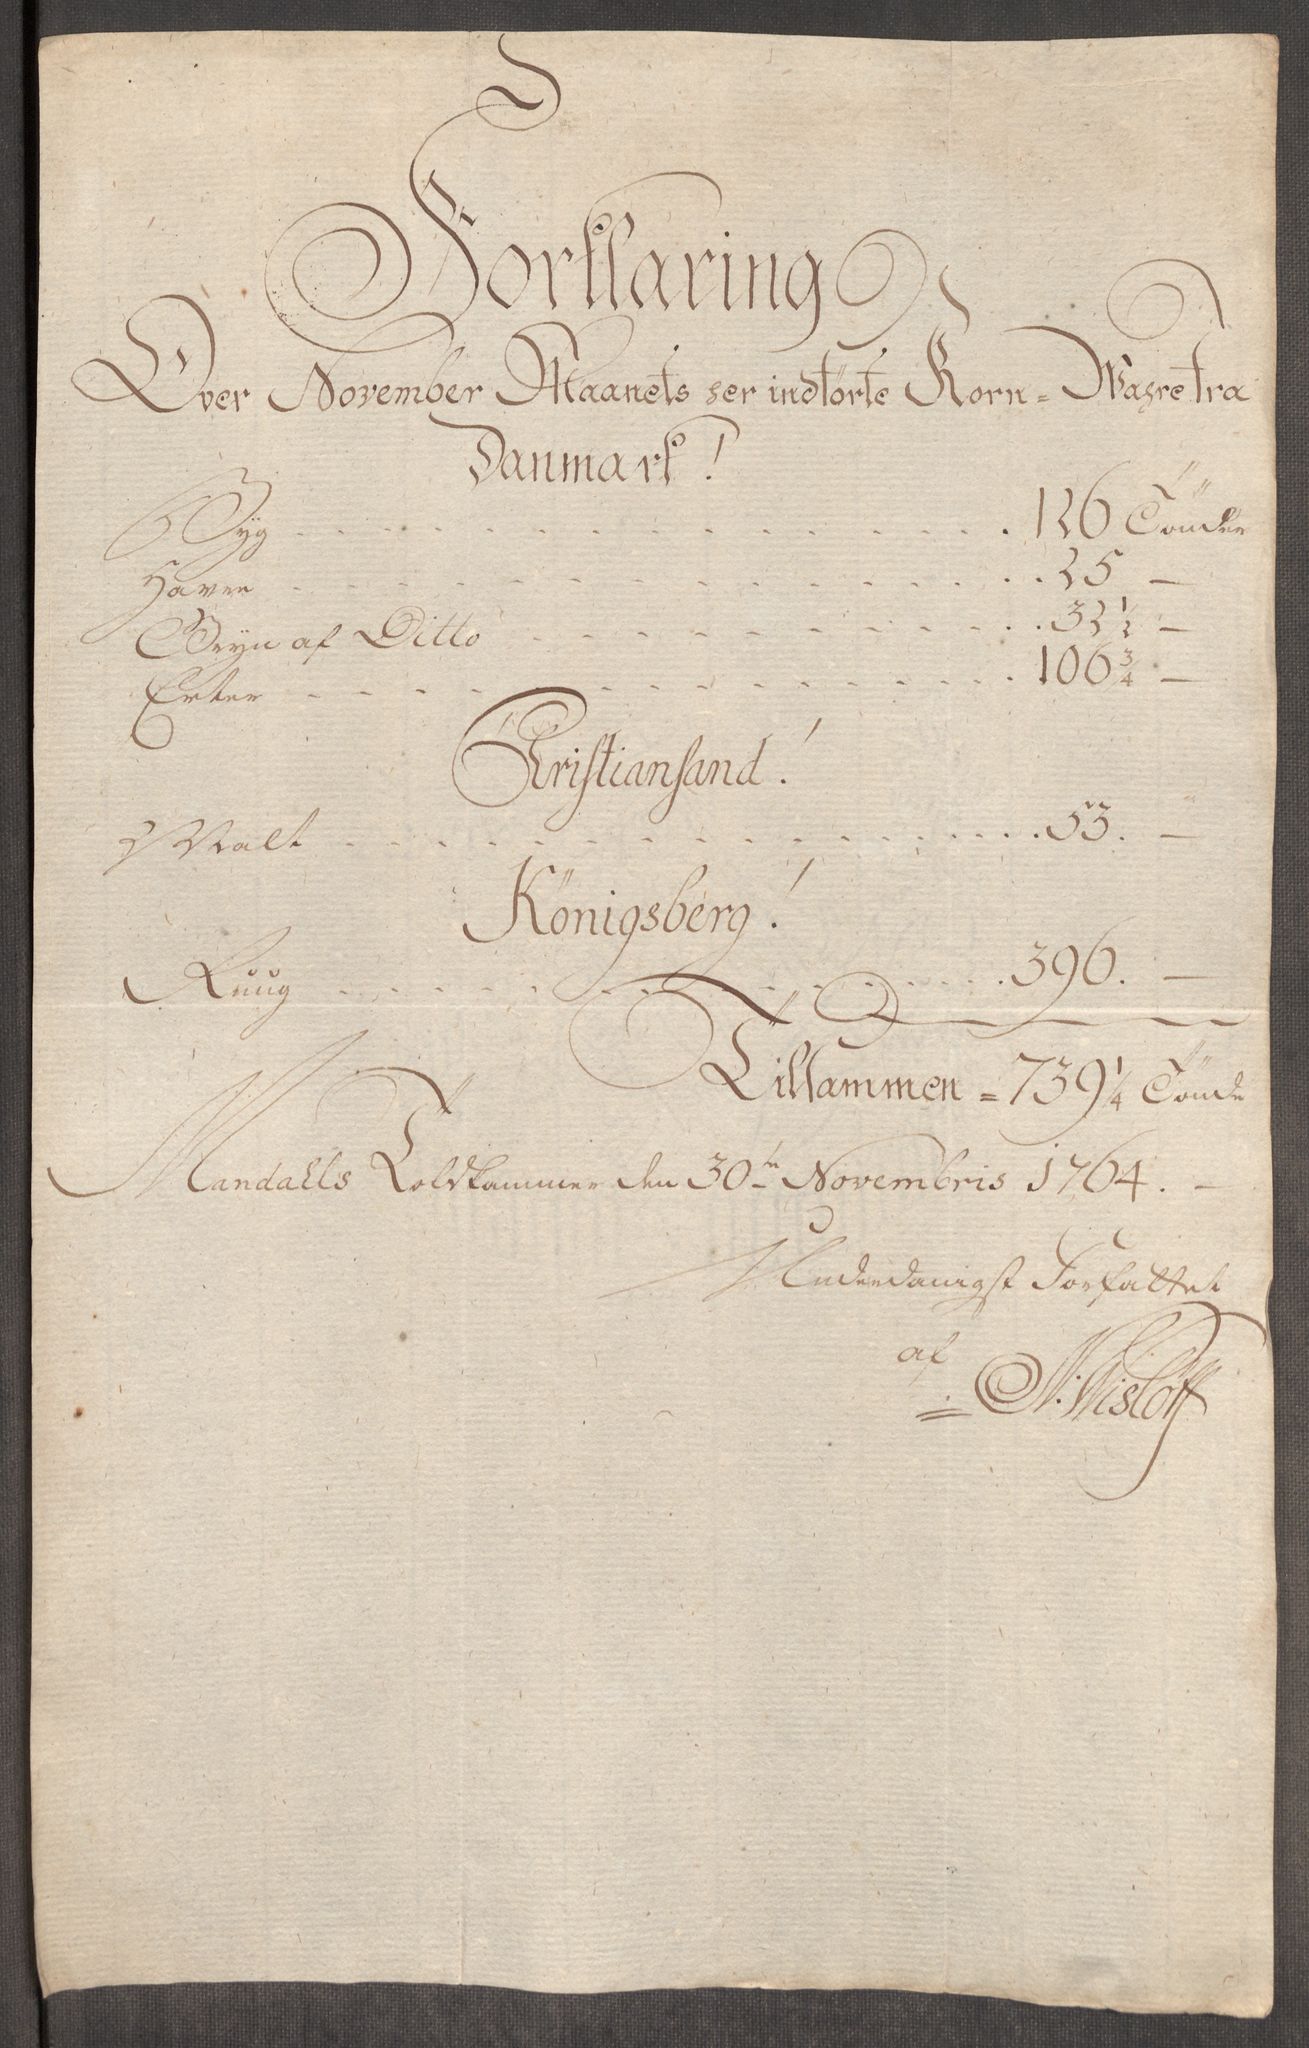 Forklaring
Over November Maanets her indförte Korn= Wahre fra
Danmark!
Byg . . . . . 126 Tönder
Havre . . . . . 25 —
Gryn af Ditto . . . . . 32 1/2 —
Erter . . . . . 106 3/4 —
Christiansand!
Malt . . . . . 53. —
Königsberg!
Ruug . . . . . 396. —
Tilsammen = 739 1/4 Tönde
Mandahls Toldkammer den 30te Novembris 1764. —
Underdanigst Forfattet
af
N: Wislöff